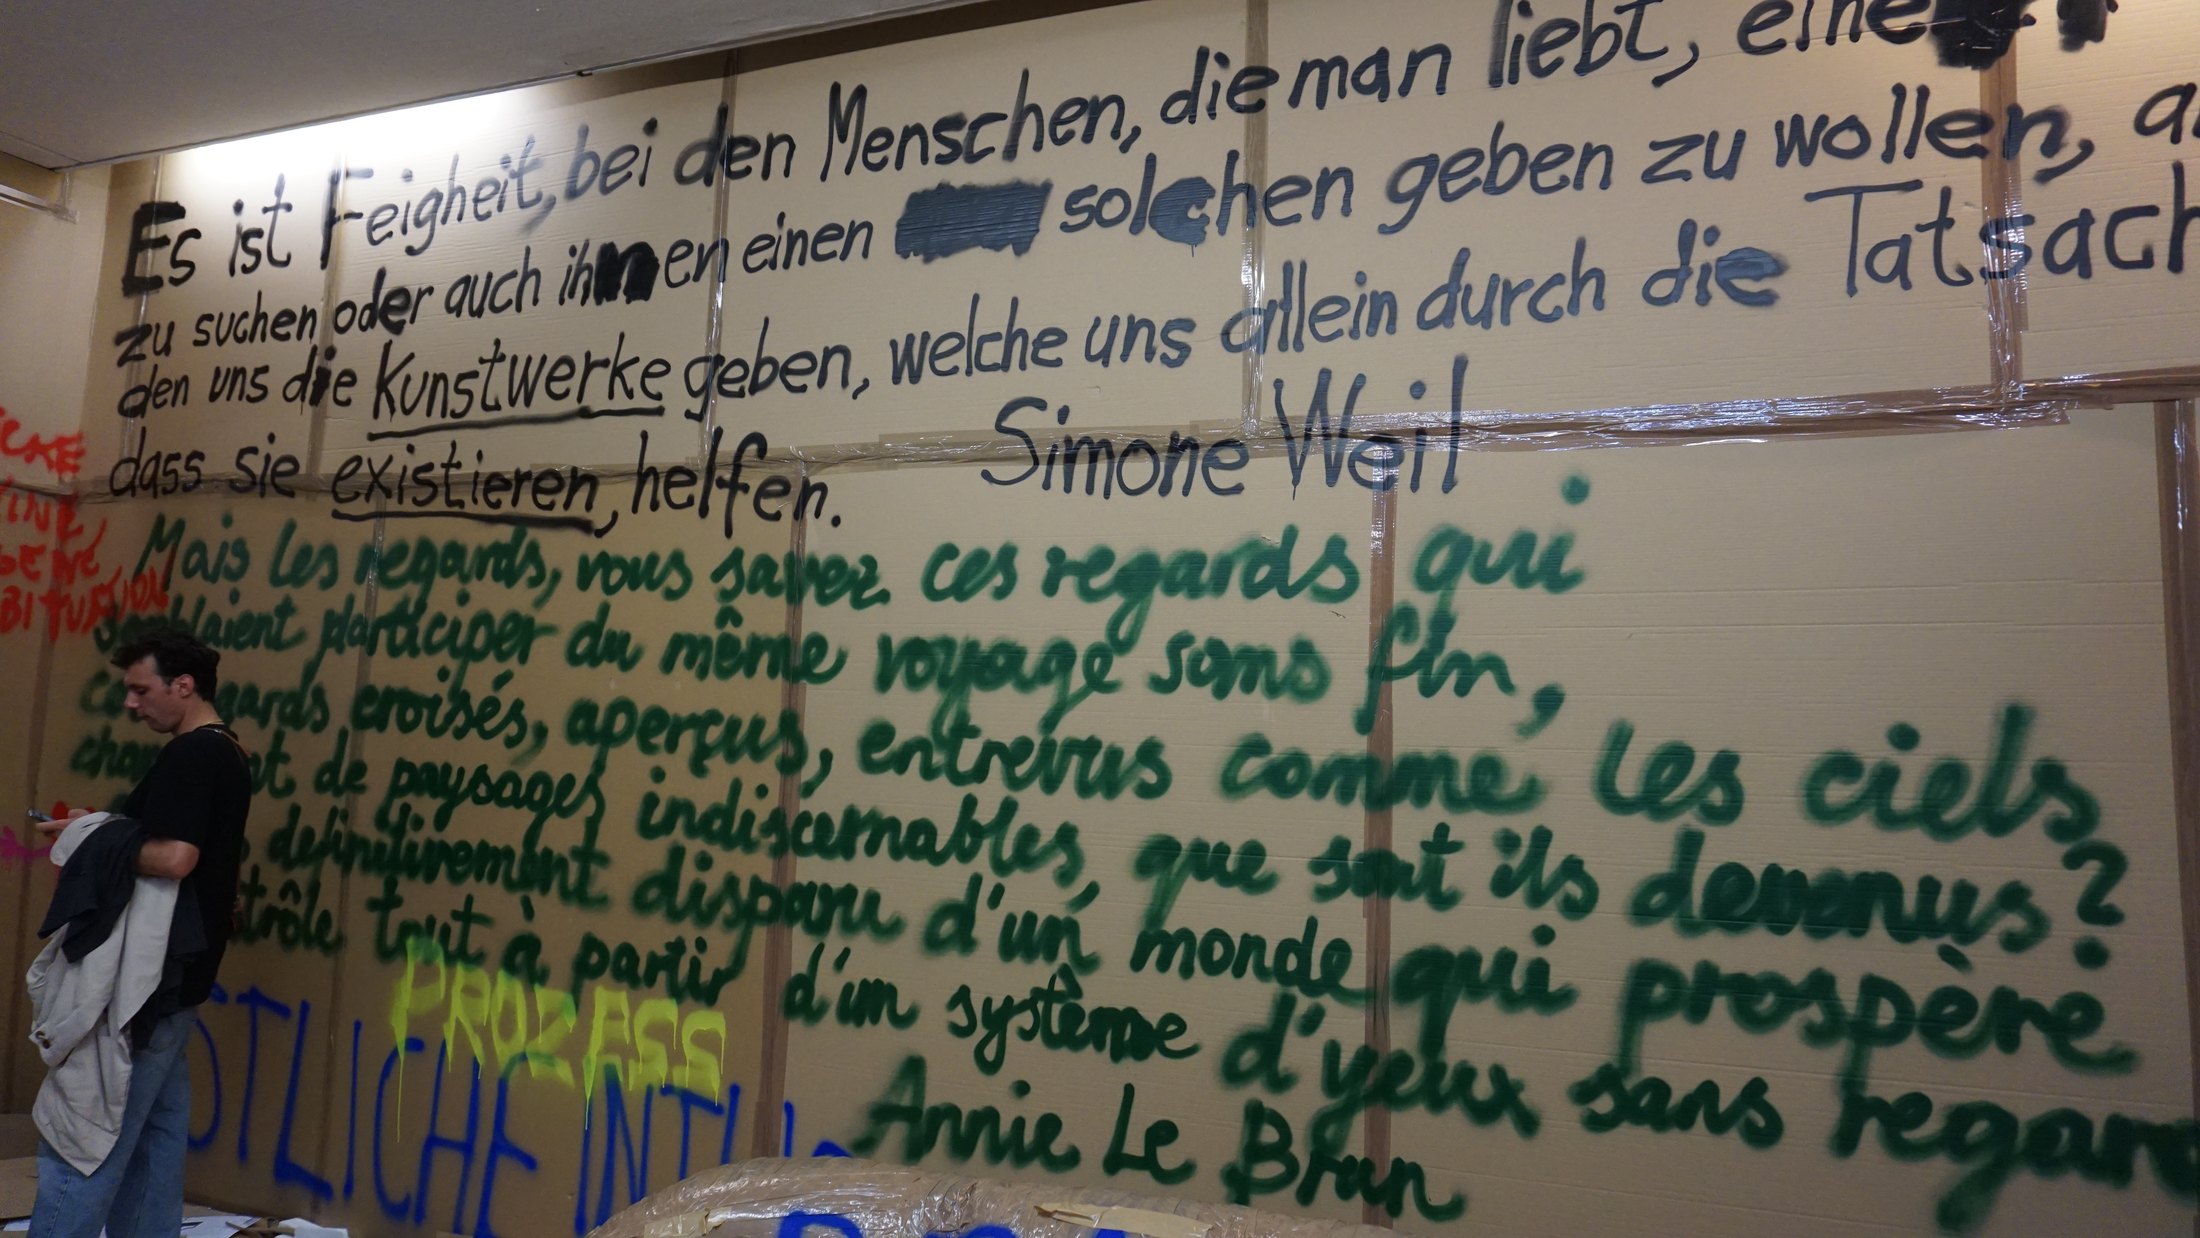 Es ist Feigheit, bei den Menschen, die man liebt, eine
zu suchen oder auch ihnen einen solchen geben zu wollen,
den uns die Kunstwerke geben, welche uns allein durch die
dass sie existieren, helfen.
Simone Weil
Mais les regards, vous savez ces regards qui
semblaient participer du même voyage sans fin,
croisés, aperçus, entrevus comme les ciels
de paysages indiscernables, que sont ils devenus?
definitivement disparu d'un monde qui prospère
tout à partir d'un système d'yeux sans
Annie Le Brun
PROZESS